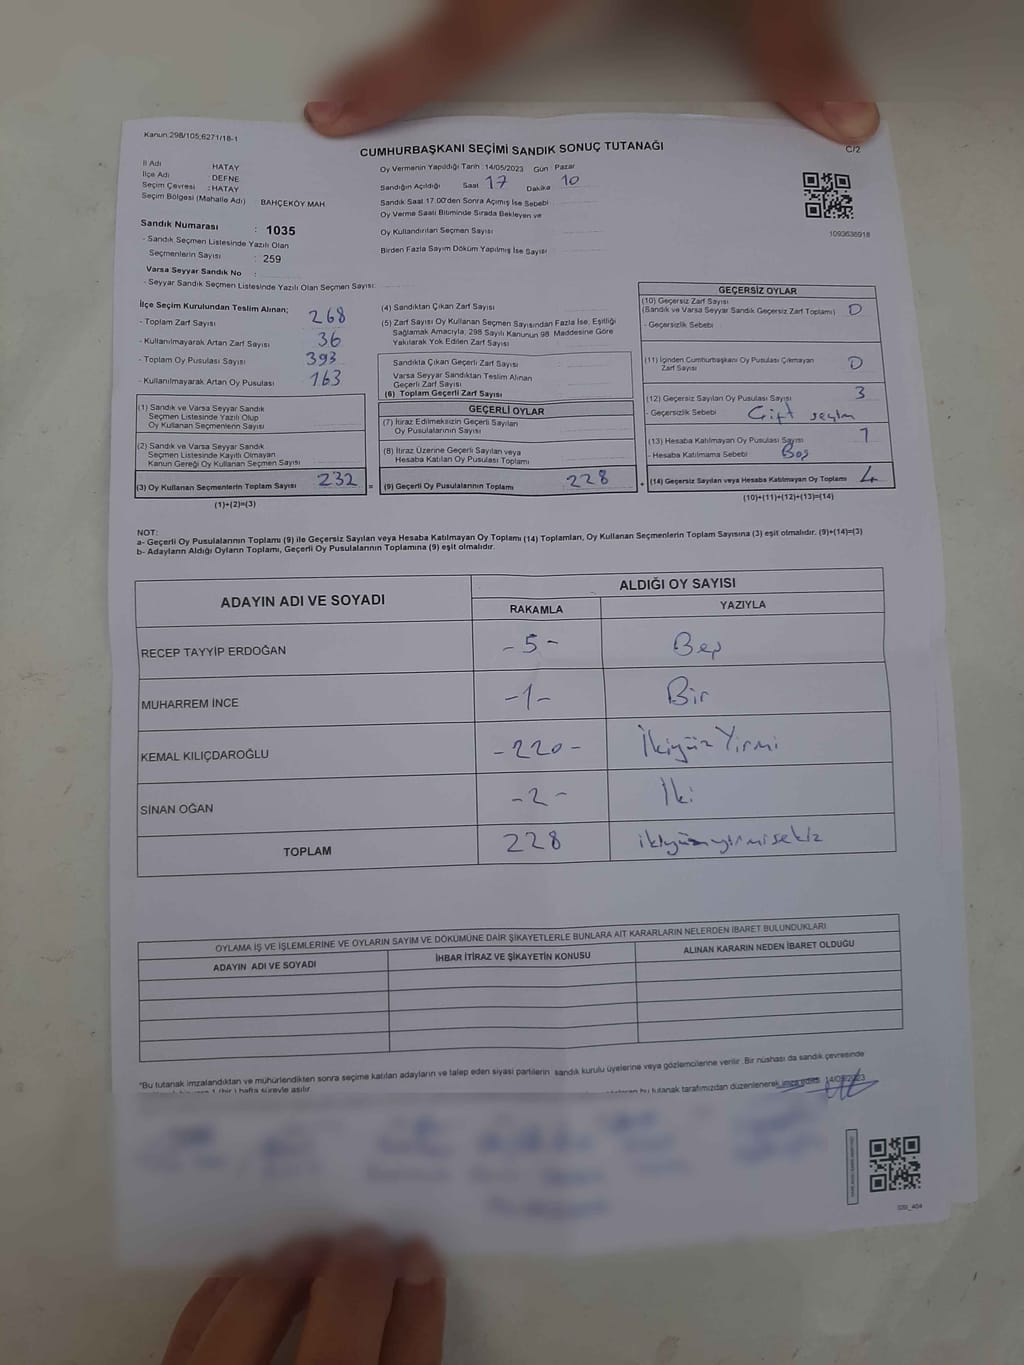 Kanun:298/105;6271/18-1
CUMHURBAŞKANI SEÇİMİ SANDIK SONUÇ TUTANAĞI
C/2
İl Adı HATAY
İlçe Adı DEFNE
Seçim Çevresi : HATAY
Seçim Bölgesi (Mahalle Adı) BAHÇEKÖY MAH
Sandık Numarası : 1035
- Sandık Seçmen Listesinde Yazılı Olan
Seçmenlerin Sayısı : 259
Varsa Seyyar Sandık No :
- Seyyar Sandık Seçmen Listesinde Yazılı Olan Seçmen Sayısı:
Oy Vermenin Yapıldığı Tarih :14/05/2023 Gün : Pazar
Sandığın Açıldığı Saat 17 Dakika 10
Sandık Saat 17.00'den Sonra Açımış İse Sebebi
Oy Verme Saati Bitiminde Sırada Bekleyen ve
Oy Kullandırılan Seçmen Sayısı
Birden Fazla Sayım Döküm Yapılmış İse Sayısı
1093636918
İlçe Seçim Kurulundan Teslim Alınan;
- Toplam Zarf Sayısı 268
- Kullanılmayarak Artan Zarf Sayısı 36
- Toplam Oy Pusulası Sayısı 393
- Kullanılmayarak Artan Oy Pusulası 163
(1) Sandık ve Varsa Seyyar Sandık
Seçmen Listesinde Yazılı Olup
Oy Kullanan Seçmenlerin Sayısı
(2) Sandık ve Varsa Seyyar Sandık
Seçmen Listesinde Kayıtlı Olmayan
Kanun Gereği Oy Kullanan Seçmen Sayısı
(3) Oy Kullanan Seçmenlerin Toplam Sayısı 232 =
(1)+(2)=(3)
(4) Sandıktan Çıkan Zarf Sayısı
(5) Zarf Sayısı Oy Kullanan Seçmen Sayısından Fazla İse, Eşitliği
Sağlamak Amacıyla; 298 Sayılı Kanunun 98. Maddesine Göre
Yakılarak Yok Edilen Zarf Sayısı
Sandıkta Çıkan Geçerli Zarf Sayısı
Varsa Seyyar Sandıktan Teslim Alınan
Geçerli Zarf Sayısı
(6) Toplam Geçerli Zarf Sayısı
GEÇERLİ OYLAR
(7) İtiraz Edilmeksizin Geçerli Sayılan
Oy Pusulalarının Sayısı
(8) İtiraz Üzerine Geçerli Sayılan veya
Hesaba Katılan Oy Pusulası Toplamı
(9) Geçerli Oy Pusulalarının Toplamı 228 +
GEÇERSİZ OYLAR
(10) Geçersiz Zarf Sayısı 0
(Sandık ve Varsa Seyyar Sandık Geçersiz Zarf Toplamı)
- Geçersizlik Sebebi
(11) İçinden Cumhurbaşkanı Oy Pusulası Çıkmayan 0
Zarf Sayısı
(12) Geçersiz Sayılan Oy Pusulası Sayısı 3
- Geçersizlik Sebebi Çift seçim
(13) Hesaba Katılmayan Oy Pusulası Sayısı 1
- Hesaba Katılmama Sebebi Boş
(14) Geçersiz Sayılan veya Hesaba Katılmayan Oy Toplamı 4
(10)+(11)+(12)+(13)=(14)
NOT:
a- Geçerli Oy Pusulalarının Toplamı (9) ile Geçersiz Sayılan veya Hesaba Katılmayan Oy Toplamı (14) Toplamları, Oy Kullanan Seçmenlerin Toplam Sayısına (3) eşit olmalıdır. (9)+(14)=(3)
b- Adayların Aldığı Oyların Toplamı, Geçerli Oy Pusulalarının Toplamına (9) eşit olmalıdır.
ADAYIN ADI VE SOYADI
ALDIĞI OY SAYISI
RAKAMLA YAZIYLA
RECEP TAYYİP ERDOĞAN -5- Beş
MUHARREM İNCE -1- Bir
KEMAL KILIÇDAROĞLU -220- İkiyüz Yirmi
SİNAN OĞAN -2- İki
TOPLAM 228 ikiyüzyirmisekiz
OYLAMA İŞ VE İŞLEMLERİNE VE OYLARIN SAYIM VE DÖKÜMÜNE DAİR ŞİKAYETLERLE BUNLARA AİT KARARLARIN NELERDEN İBARET BULUNDUKLARI
ADAYIN ADI VE SOYADI İHBAR İTİRAZ VE ŞİKAYETİN KONUSU ALINAN KARARIN NEDEN İBARET OLDUĞU
*Bu tutanak imzalandıktan ve mühürlendikten sonra seçime katılan adayların ve talep eden siyasi partilerin sandık kurulu üyelerine veya gözlemcilerine verilir. Bir nüshası da sandık çevresinde
1 (bir) hafta süreyle asılır. bu tutanak tarafımızdan düzenlenerek imza edildi. 14/05/2023